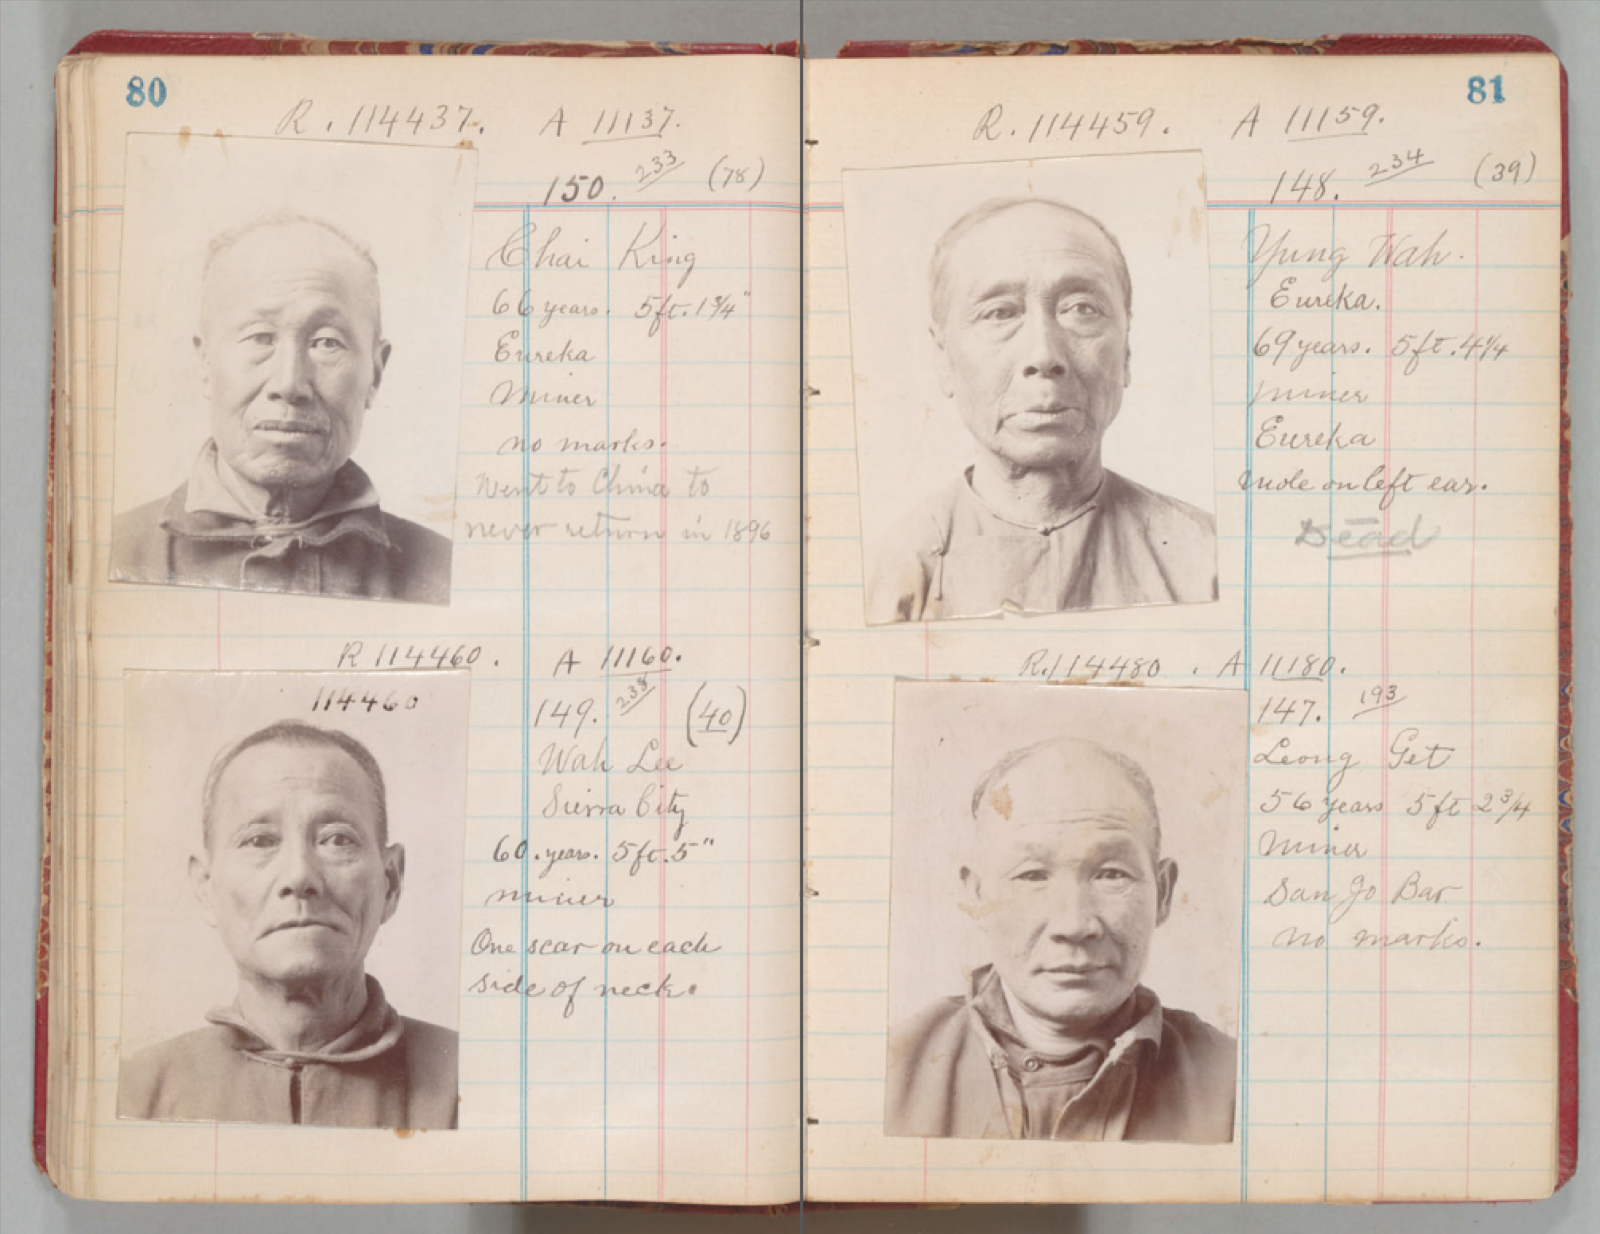 80
R. 114437. A 11137.
150. 233 (78)
Chai King
66 years. 5ft. 1 3/4"
Eureka
Miner
no marks.
Went to China to
never return in 1896
R 114460. A 11160.
114460
149. 238 (40)
Wah Lee
Sierra City
60. years. 5ft. 5"
miner
One scar on each
side of neck.
81
R. 114459. A 11159.
148. 234 (39)
Yung Wah.
Eureka.
69 years. 5ft. 4 1/4
miner
Eureka
mole on left ear.
Dead
R. 114480. A 11180.
147. 193
Leong Get
56 years 5ft 2 3/4
Miner
San Jo Bar
no marks.